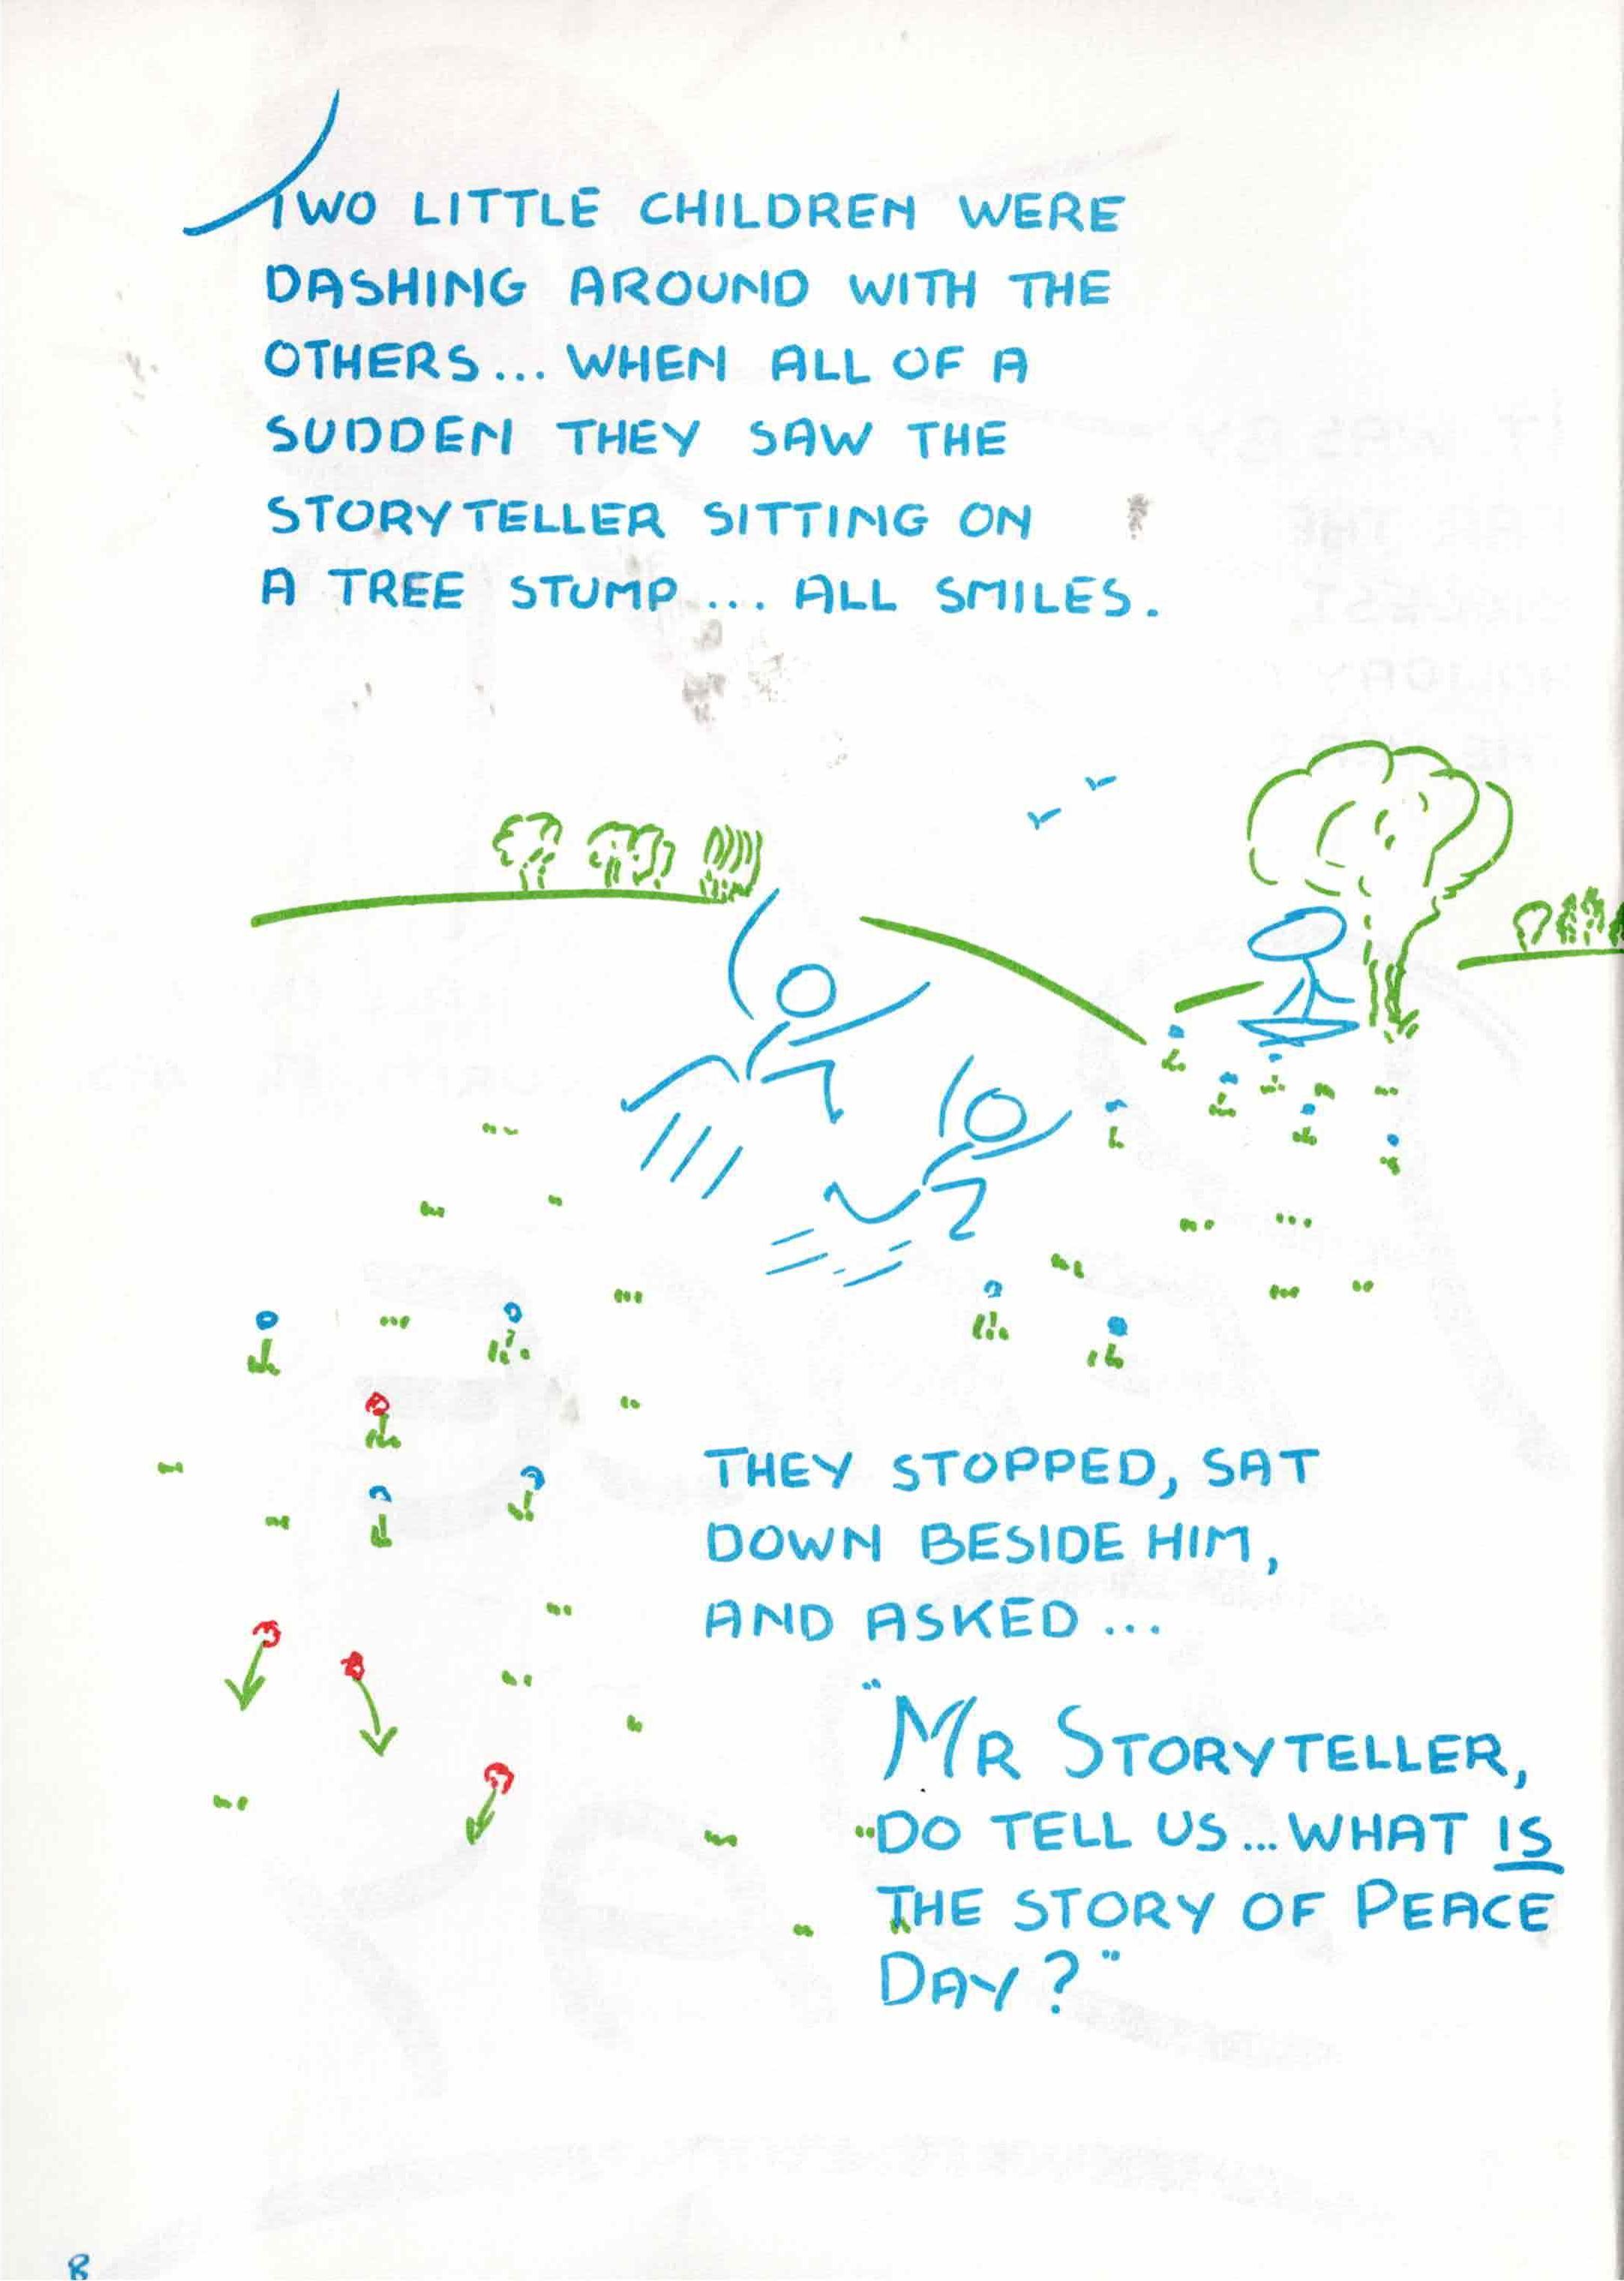 TWO LITTLE CHILDREN WERE
DASHING AROUND WITH THE
OTHERS... WHEN ALL OF A
SUDDEN THEY SAW THE
STORYTELLER SITTING ON
A TREE STUMP... ALL SMILES.
THEY STOPPED, SAT
DOWN BESIDE HIM,
AND ASKED...
"MR STORYTELLER,
"DO TELL US... WHAT IS
THE STORY OF PEACE
DAY?"
8